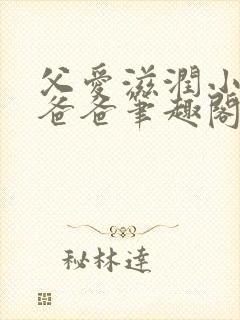 父愛滋潤小
爸爸筆趣閣
秘林達